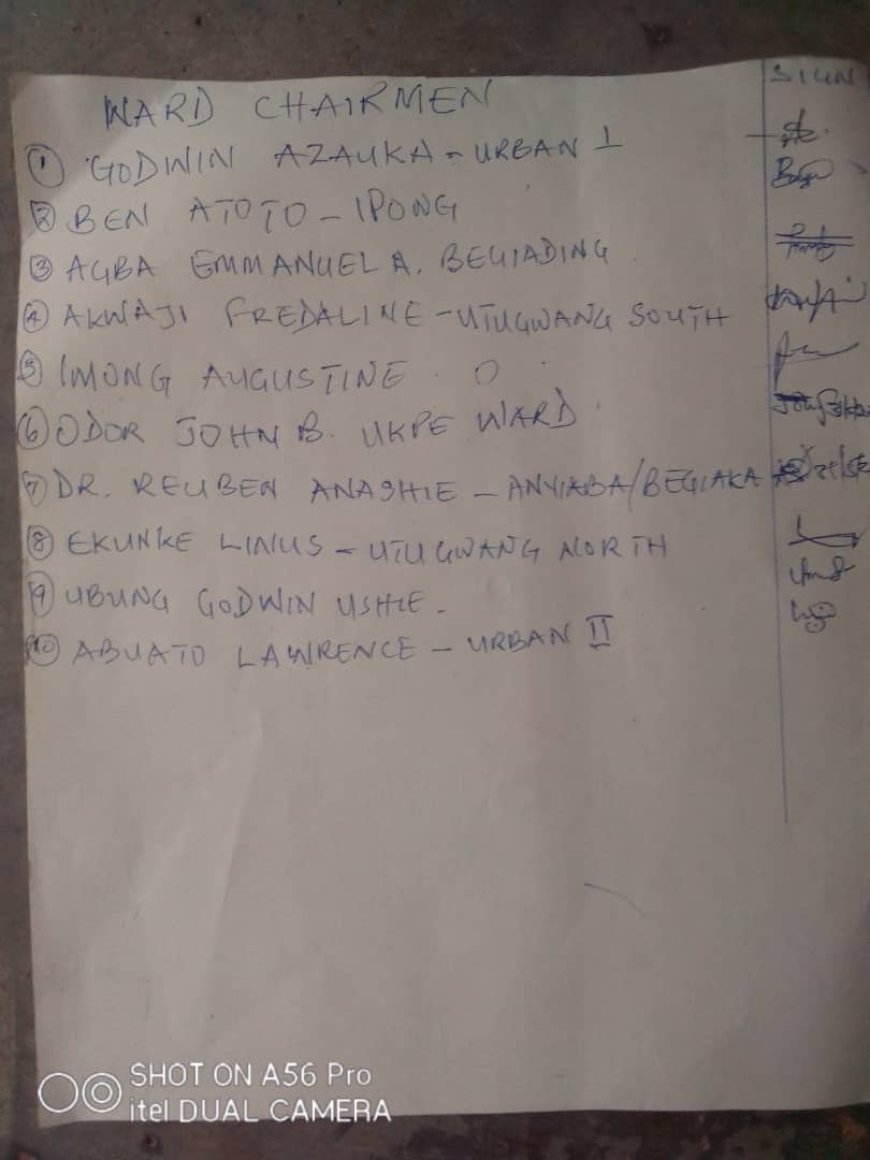 WARD CHAIRMEN
SIGN
① GODWIN AZAUKA - URBAN 1
② BEN ATOTO - IPONG
③ AGBA EMMANUEL A. BEGIADING
④ AKWAJI FREDALINE - UTUGWANG SOUTH
⑤ IMONG AUGUSTINE O
⑥ ODOR JOHN B. UKPE WARD
⑦ DR. REUBEN ANASHIE - ANYIABA/BEGIAKA
⑧ EKUNKE LINUS - UTUGWANG NORTH
⑨ UBUNG GODWIN USHIE -
⑩ ABUATO LAWRENCE - URBAN II
SHOT ON A56 Pro
itel DUAL CAMERA